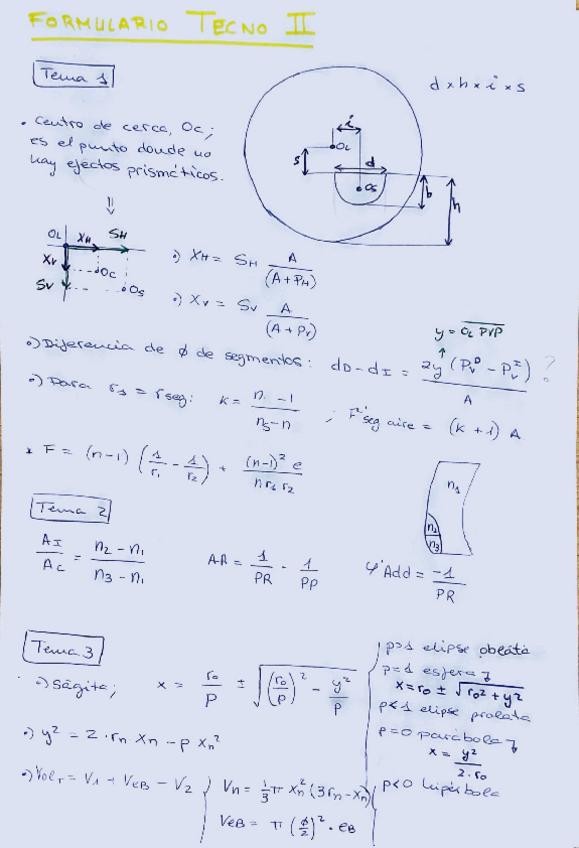 FORMULARIO TECNO II
Tema 1
d x h x i x s
• Centro de cerca, Oc;
es el punto donde no
hay efectos prismáticos.
⇓
i
OL
s
d
Os
b
h
OL XH SH
XV
Oc
SV
Os
•) XH = SH A/(A+PH)
•) XV = SV A/(A+PV)
y = OL PVP
•) Diferencia de ϕ de segmentos: dD - dI = 2y (PvD - PvI)/A ?
•) Para r1 = rseg: K = (n - 1)/(n3 - n) ; F'seg aire = (K+1) A
* F = (n-1) (1/r1 - 1/r2) + (n-1)² e/(n r1 r2)
n1
n2
n3
Tema 2
AI/AC = (n2 - n1)/(n3 - n1) AA = 1/PR - 1/PP φ Add = -1/PR
Tema 3
•) Ságita; x = r0/p ± √((r0/p)² - y²/p)
•) y² = 2·rn xn - p xn²
•) VolT = V1 + VeB - V2 } Vn = 1/3 π xn² (3rn - xn)
VeB = π (ϕ/2)² · eB
p>1 elipse obeata
p=1 esfera
x = r0 ± √(r0² + y²)
p<1 elipse prolata
p=0 parábola
x = y²/(2·r0)
p<0 hipérbola